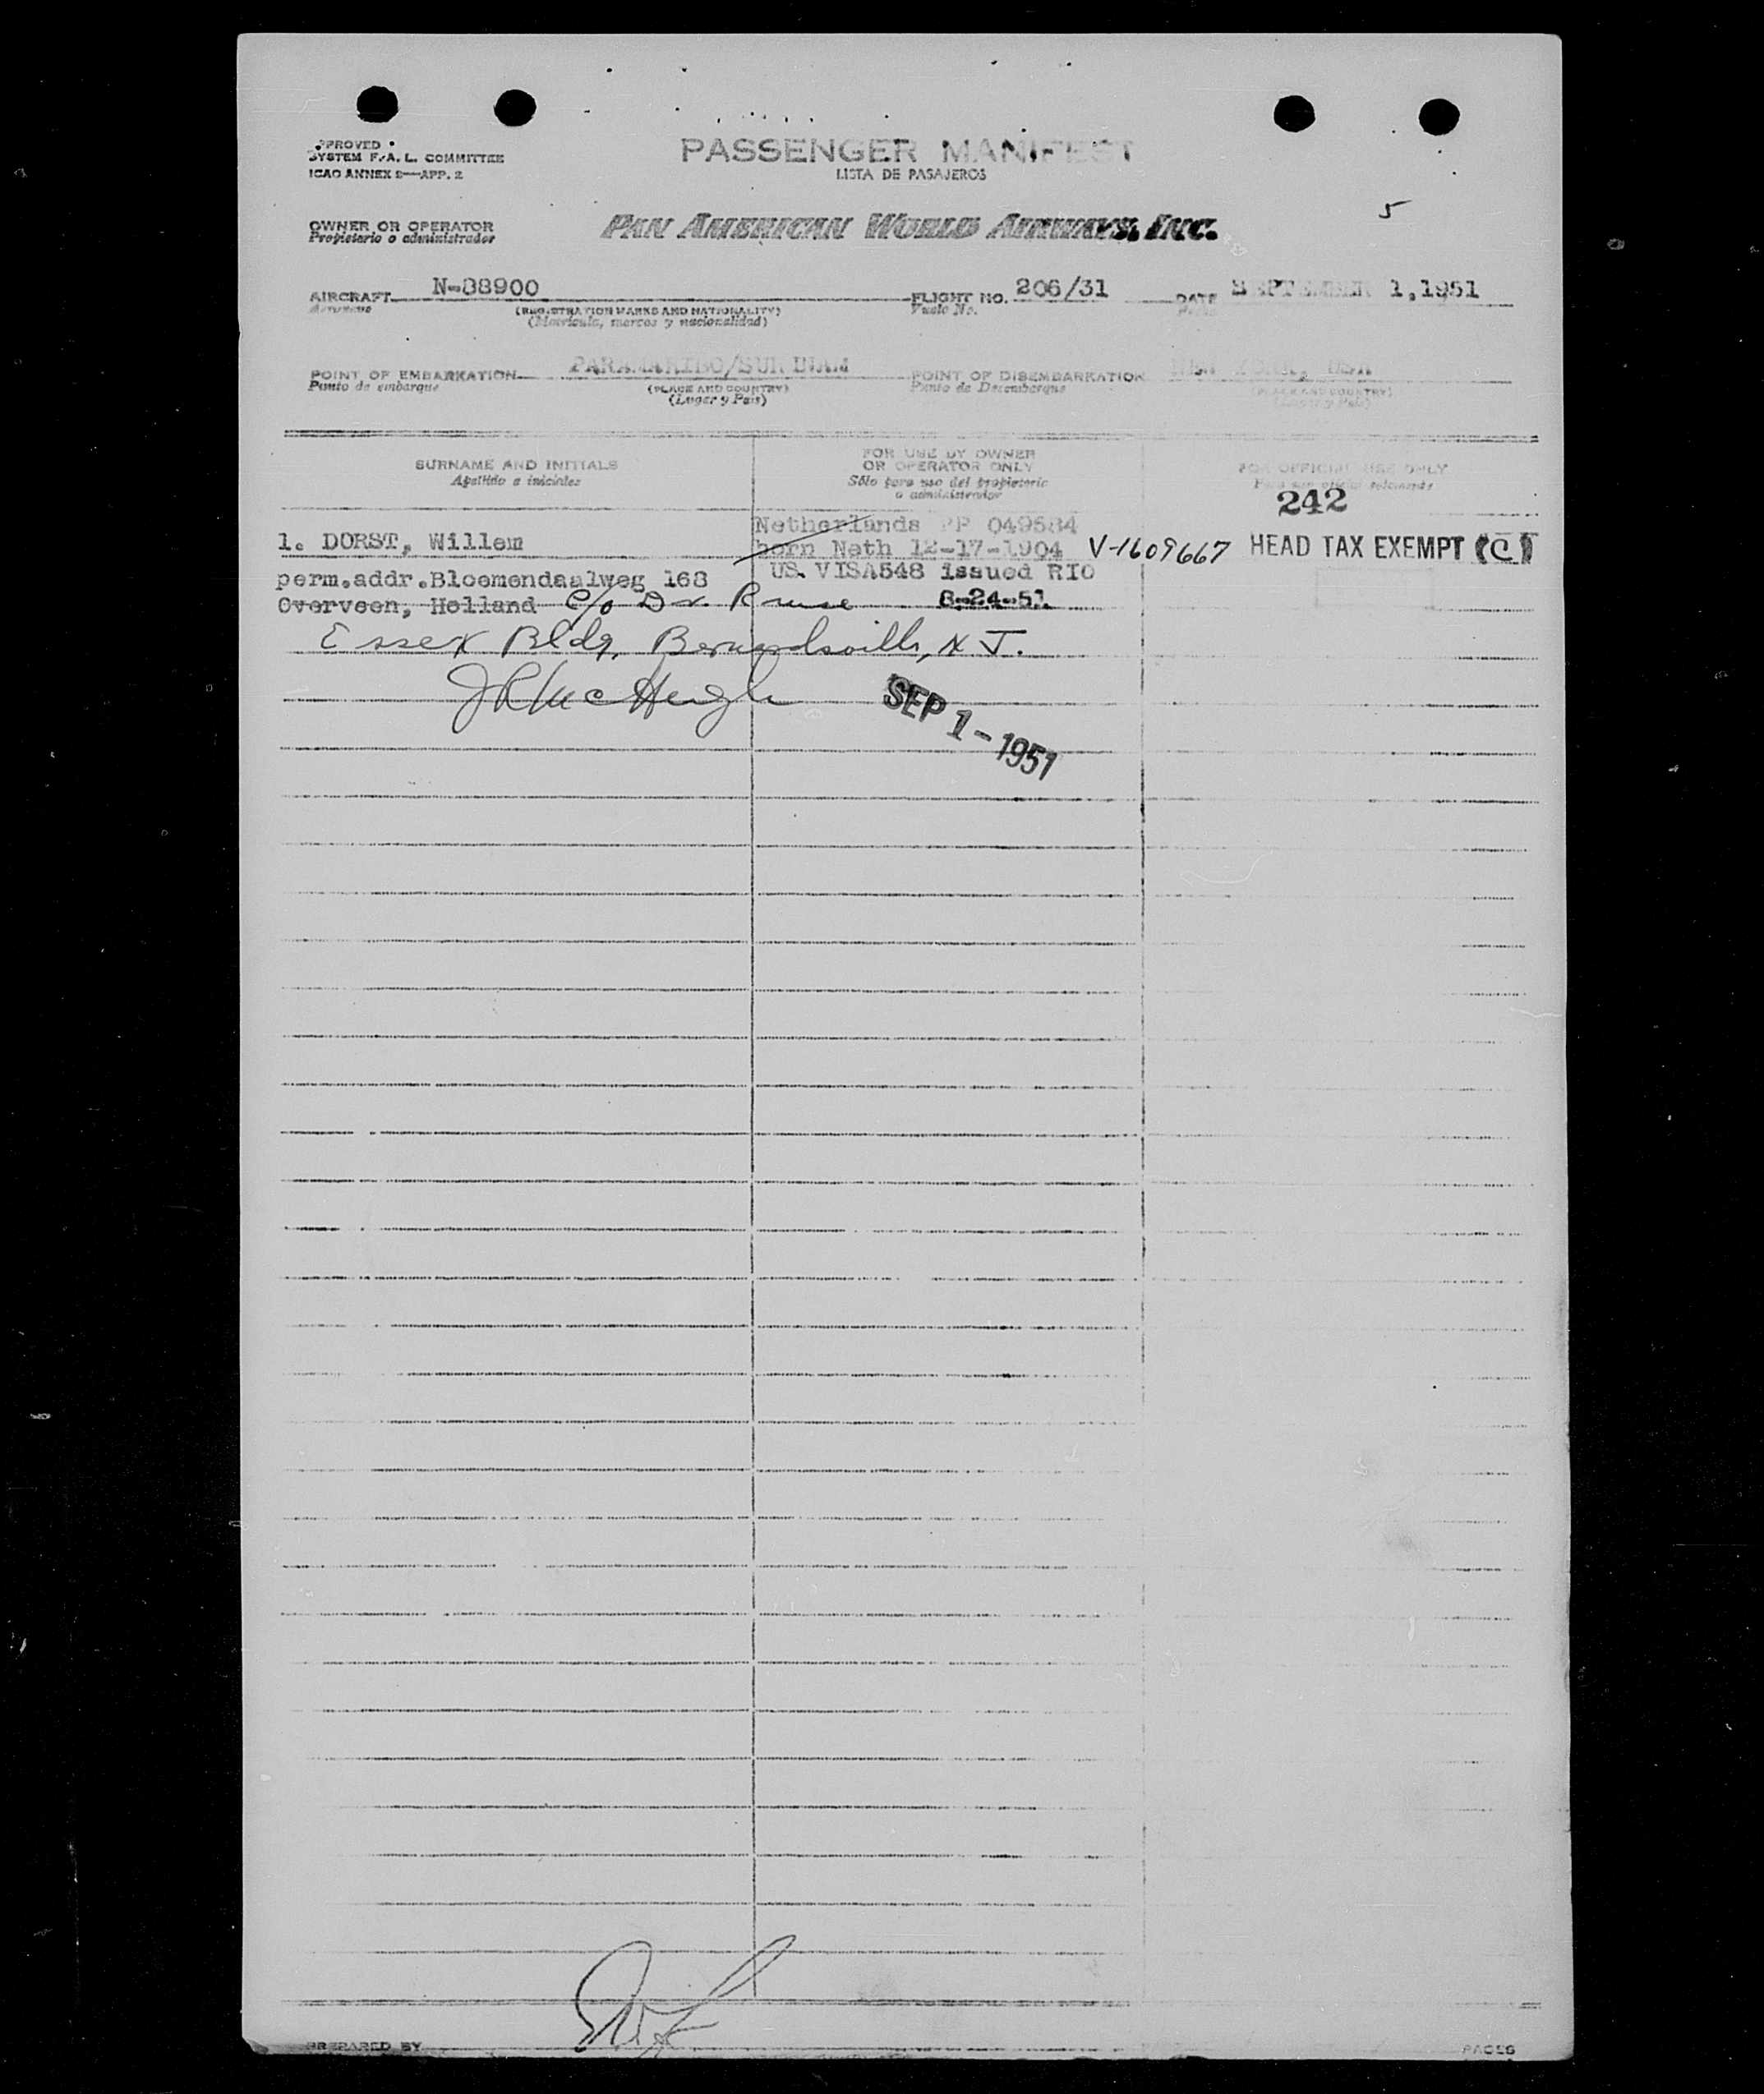 APPROVED
SYSTEM F.A.L. COMMITTEE
ICAO ANNEX 9—APP. 2
PASSENGER MANIFEST
LISTA DE PASAJEROS
5
OWNER OR OPERATOR
Propietario o administrador
PAN AMERICAN WORLD AIRWAYS, INC.
AIRCRAFT N-88900 FLIGHT NO. 206/31 DATE SEPTEMBER 1,1951
(REGISTRATION MARKS AND NATIONALITY) Vuelo No.
(Matrícula, marcas y nacionalidad)
POINT OF EMBARKATION PARAMARIBO/SURINAM POINT OF DISEMBARKATION NEW YORK, USA
Punto de embarque (PLACE AND COUNTRY) Punto de Desembarque (PLACE AND COUNTRY)
(Lugar y País) (Lugar y País)
SURNAME AND INITIALS
Apellido e iniciales
FOR USE BY OWNER
OR OPERATOR ONLY
Sólo para uso del propietario
o administrador
FOR OFFICIAL USE ONLY
Para uso oficial solamente
242
Netherlands PP 049584
1. DORST, Willem born Neth 12-17-1904 V-1609667 HEAD TAX EXEMPT (C)
perm.addr.Bloemendaalweg 168 US. VISA548 issued RIO
Overveen, Holland c/o Dr. Kruse 8-24-51
Essex Bldg, Bernardsville, N.J.
JR McHugh
SEP 1-1951
PREPARED BY
PAGES